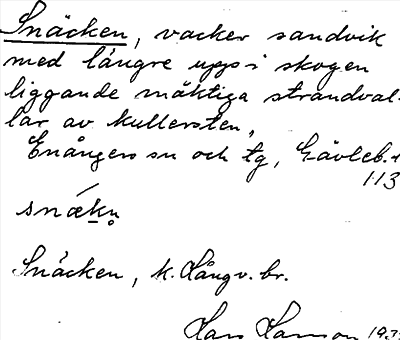 Snäcken, vacker sandvik
med längre upp i skogen
liggande mäktiga strandval-
lar av kullersten,
Enångers sn och tg, Gävleb.
113
snækn̥
Snäcken, k. Långv. br.
Hans Hanson 193